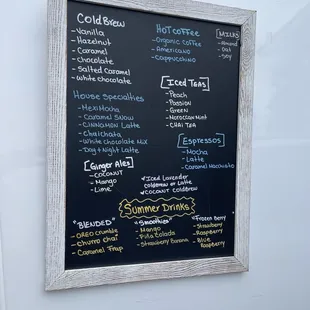 Cold Brew
- Vanilla
- Hazelnut
- Caramel
- Chocolate
- Salted Caramel
- White chocolate
HOT COFFEE
- Organic Coffee
- Americano
- Cappuccino
[MILKS]
- Almond
- Oat
- Soy
[Iced Teas]
- Peach
- Passion
- Green
- Moroccan Mint
- CHAI TEA
House Specialties
- MexiMocha
- Caramel Snow
- CINNAMON Latte
- Chaichata
- White chocolate Mix
- Day + Night Latte
[Espressos]
- Mocha
- Latte
- Caramel Macchiato
[Ginger Ales]
- COCONUT
- Mango
- Lime
✓ Iced Lavender
coldbrew or Latte
✓ Coconut Coldbrew
Summer Drinks
"BLENDED"
- OREO crumble
- Churro chai
- Caramel Frap
"Smoothies"
- Mango
- Piña Colada
- Strawberry Banana
"Frozen berry"
- Strawberry
- Raspberry
- Blue
Raspberry